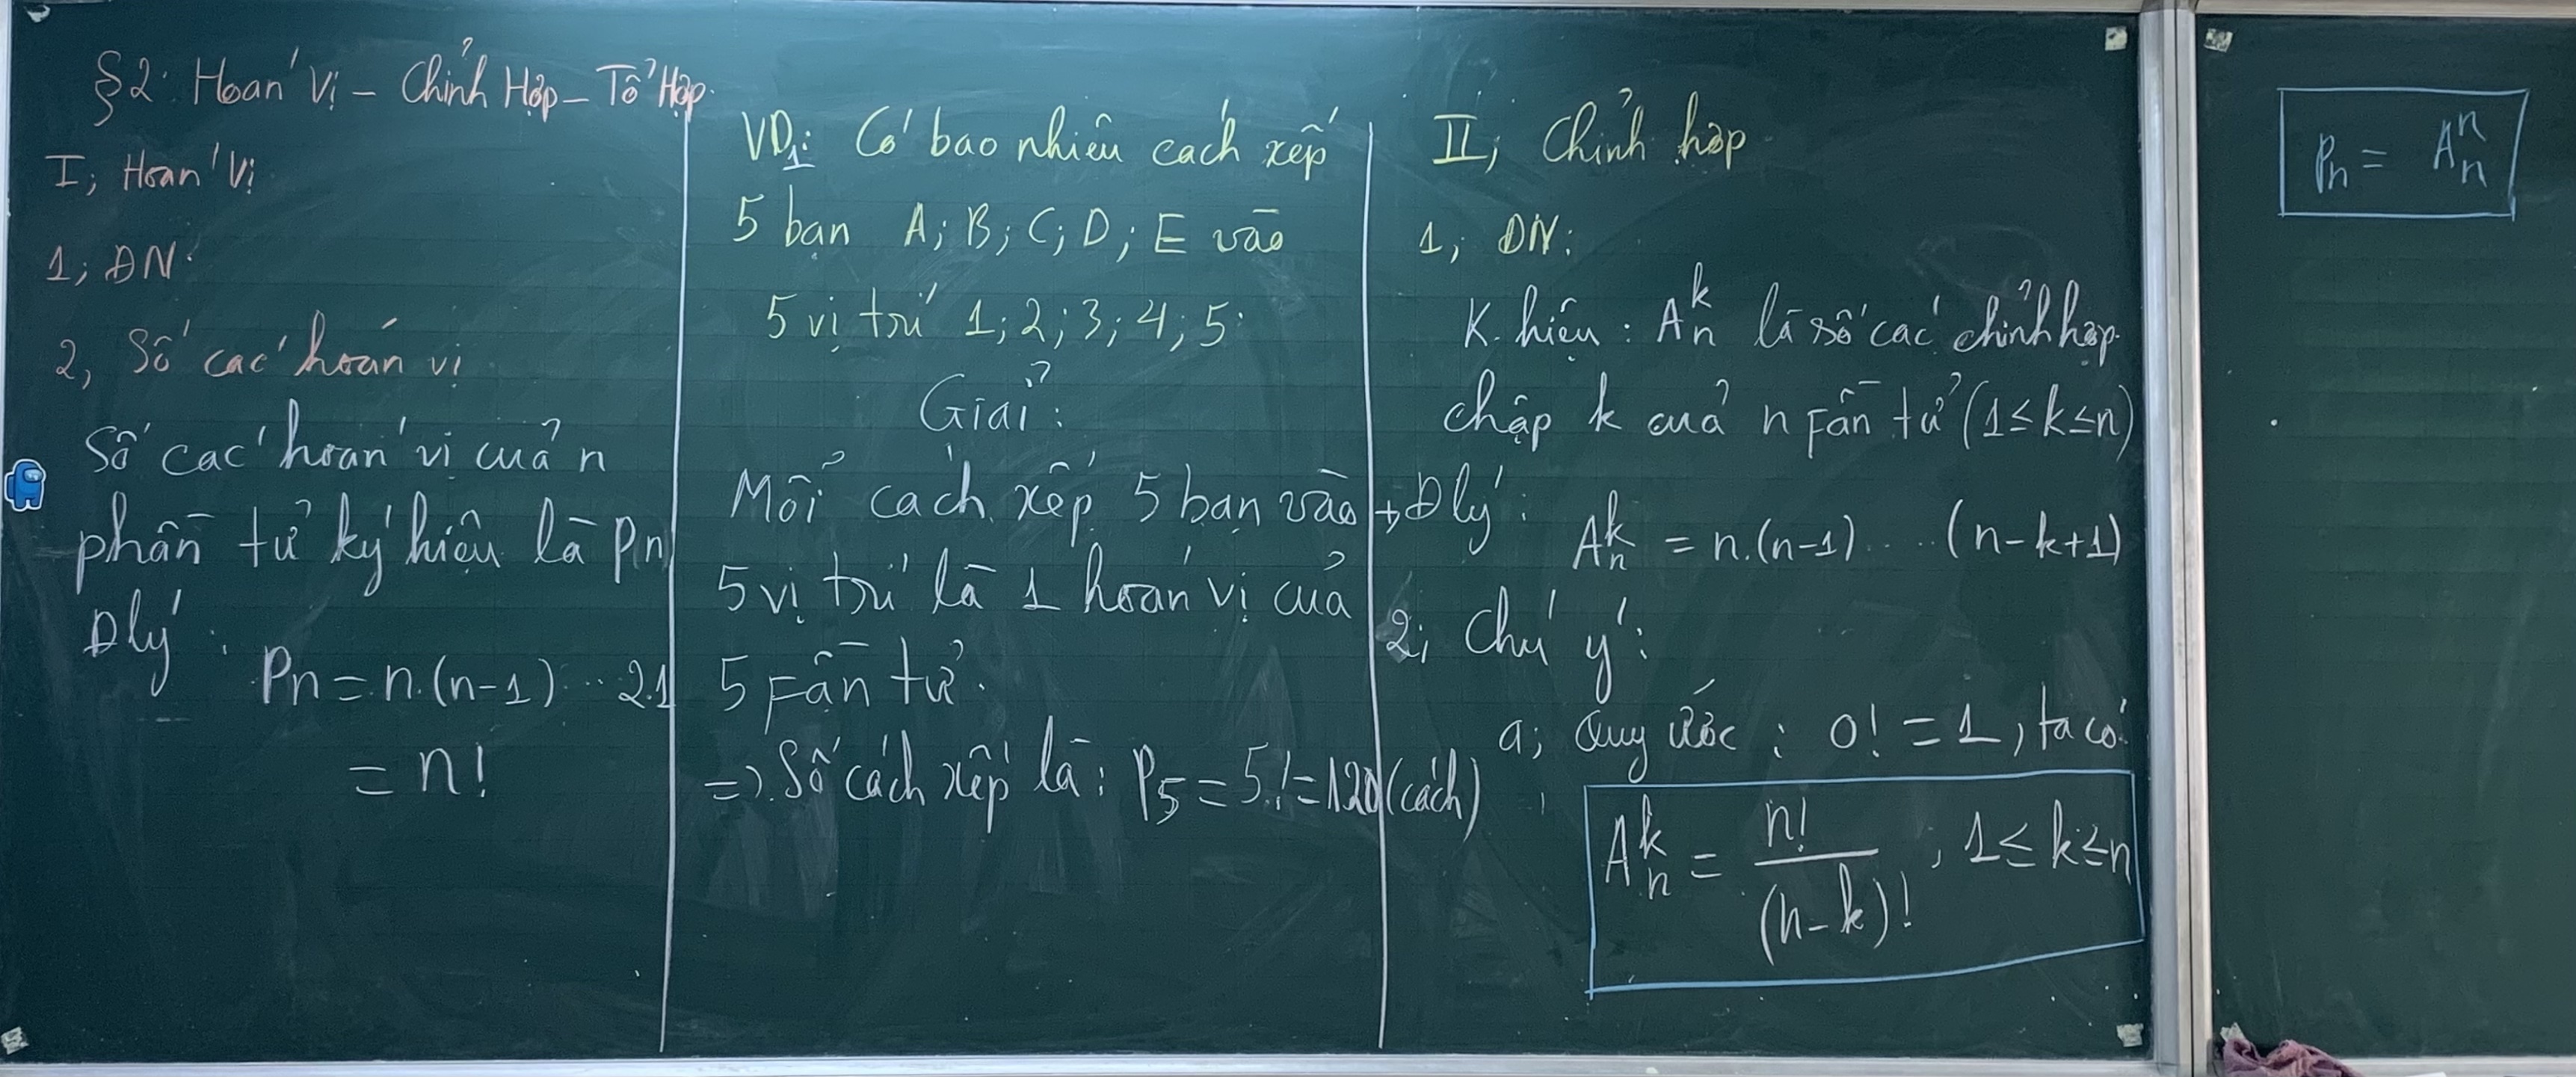 §2: Hoán Vị - Chỉnh Hợp - Tổ Hợp.
I; Hoán Vị
1; ĐN:
2, Số các hoán vị
Số các hoán vị của n
phần tử ký hiệu là Pn
Đlý:
Pn = n.(n-1) ... 2.1
= n!
VD1: Có bao nhiêu cách xếp
5 bạn A; B; C; D; E vào
5 vị trí 1; 2; 3; 4; 5.
Giải:
Mỗi cách xếp 5 bạn vào
5 vị trí là 1 hoán vị của
5 Fần tử.
=> Số cách xếp là: P₅ = 5! = 120 (cách)
II; Chỉnh hợp
1; ĐN:
K. hiệu: Aₙᵏ là số các chỉnh hợp
chập k của n Fần tử (1 ≤ k ≤ n)
+ Đlý:
Aₙᵏ = n.(n-1) ... (n-k+1)
2; Chú ý:
a; Quy ước: 0! = 1, ta có:
Aₙᵏ = n!/(n-k)! ; 1 ≤ k ≤ n
Pn = Aₙⁿ